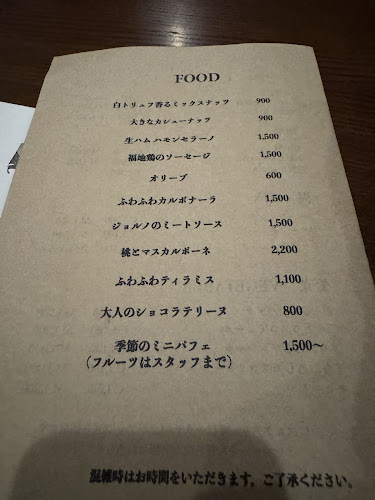 FOOD
白トリュフ香るミックスナッツ 900
大きなカシューナッツ 900
生ハム ハモンセラーノ 1,500
福地鶏のソーセージ 1,500
オリーブ 600
ふわふわカルボナーラ 1,500
ジョルノのミートソース 1,500
桃とマスカルポーネ 2,200
ふわふわティラミス 1,100
大人のショコラテリーヌ 800
季節のミニパフェ 1,500～
（フルーツはスタッフまで）
混雑時はお時間をいただきます。ご了承ください。